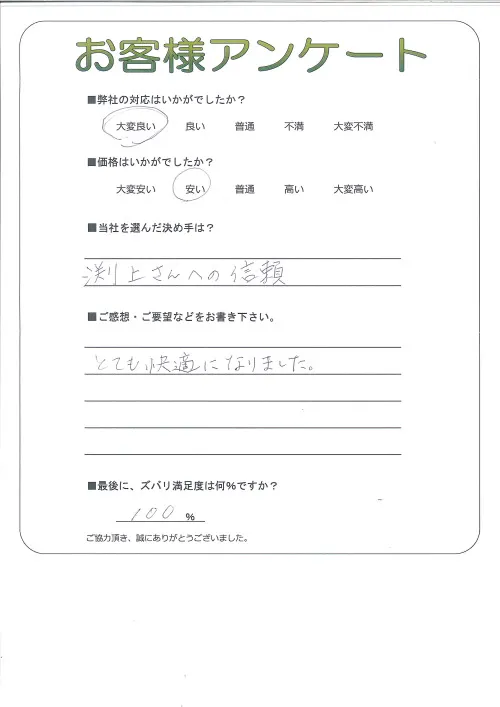 お客様アンケート
■弊社の対応はいかがでしたか？
大変良い 良い 普通 不満 大変不満
■価格はいかがでしたか？
大変安い 安い 普通 高い 大変高い
■当社を選んだ決め手は？
渕上さんへの信頼
■ご感想・ご要望などをお書き下さい。
とても快適になりました。
■最後に、ズバリ満足度は何％ですか？
100 ％
ご協力頂き、誠にありがとうございました。